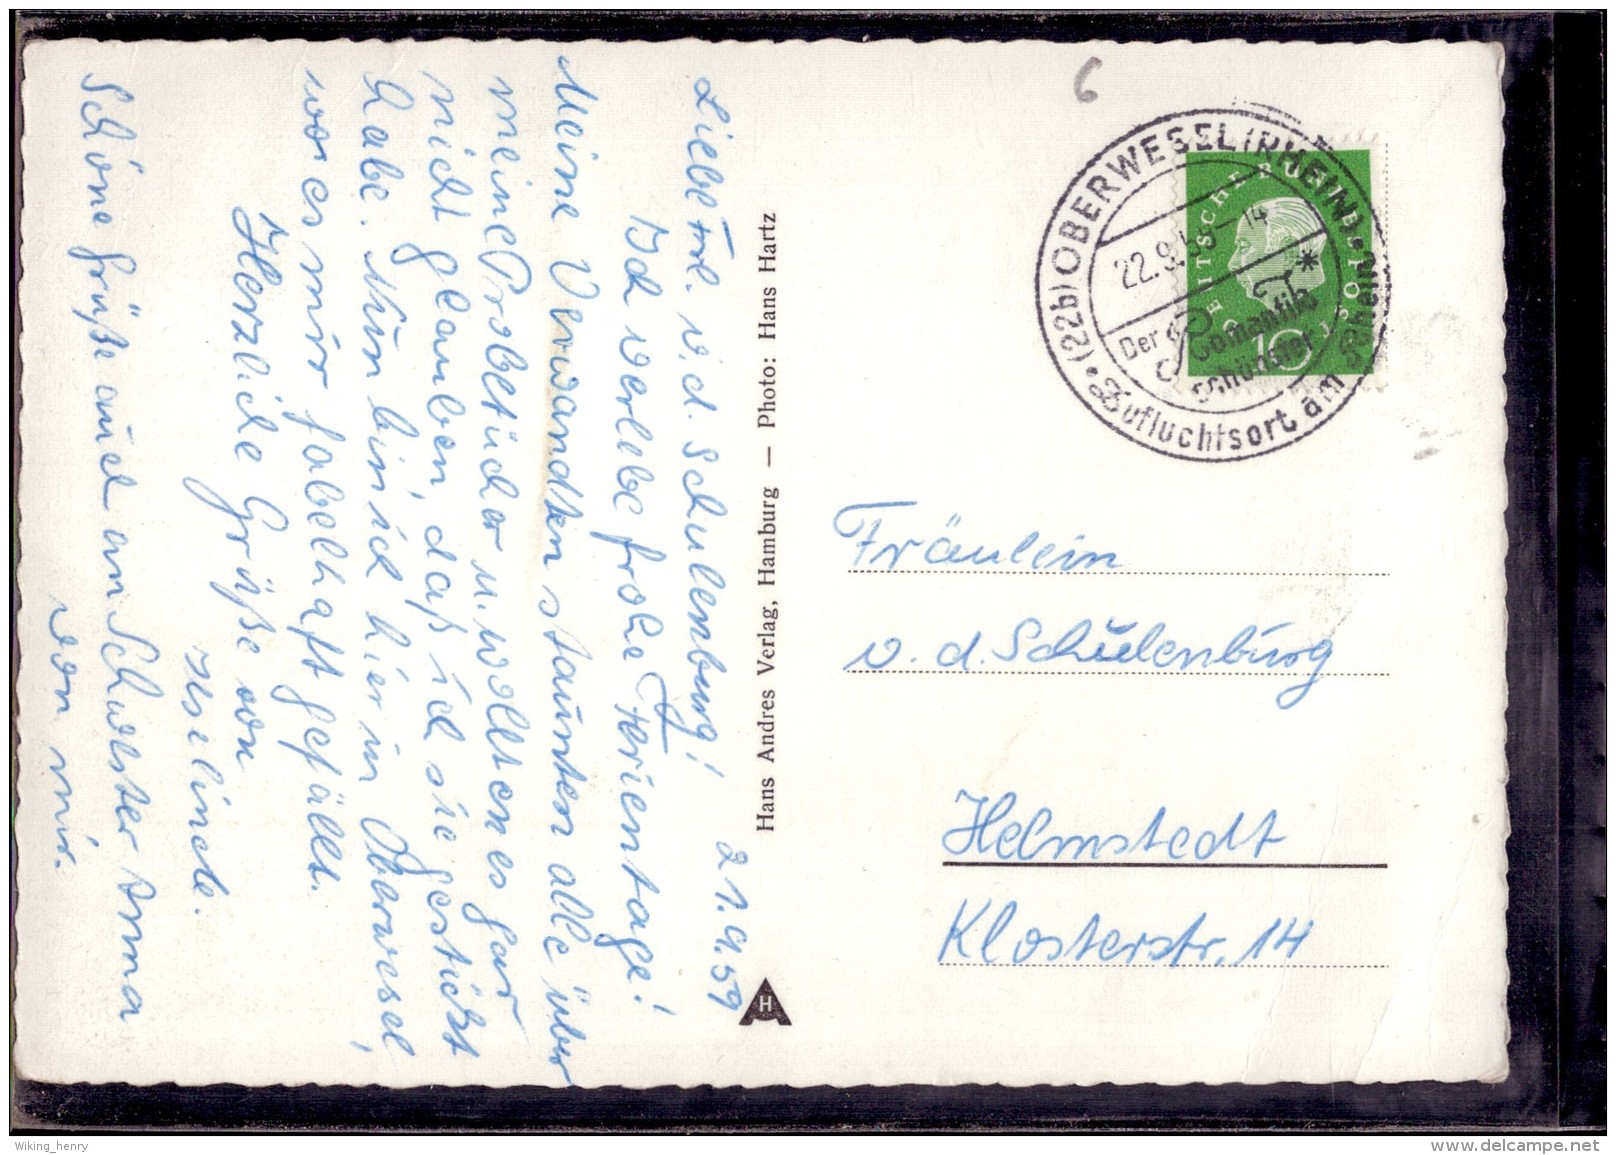 21.9.59
Liebe Frl. v. d. Schulenburg!
Ich verlebe frohe Ferientage!
Meine Verwandten staunten alle über
meine Probetücher u. wollten es gar
nicht glauben, daß ich sie gestickt
habe. Nun bin ich hier in Oberwesel,
wo es mir fabelhaft gefällt.
Herzliche Grüße von
Iselinde.
Schöne Grüße auch an Schwester Anna
von mir.
Hans Andres Verlag, Hamburg — Photo: Hans Hartz
H
6
(22b) OBERWESEL (RHEIN)
22.9.
14
Der
Romantik
schönster
Zufluchtsort am Rhein
DEUTSCHE BUNDESPOST
10
Fräulein
v. d. Schulenburg
Helmstedt
Klosterstr. 14
Wiking_henry
www.delcampe.net